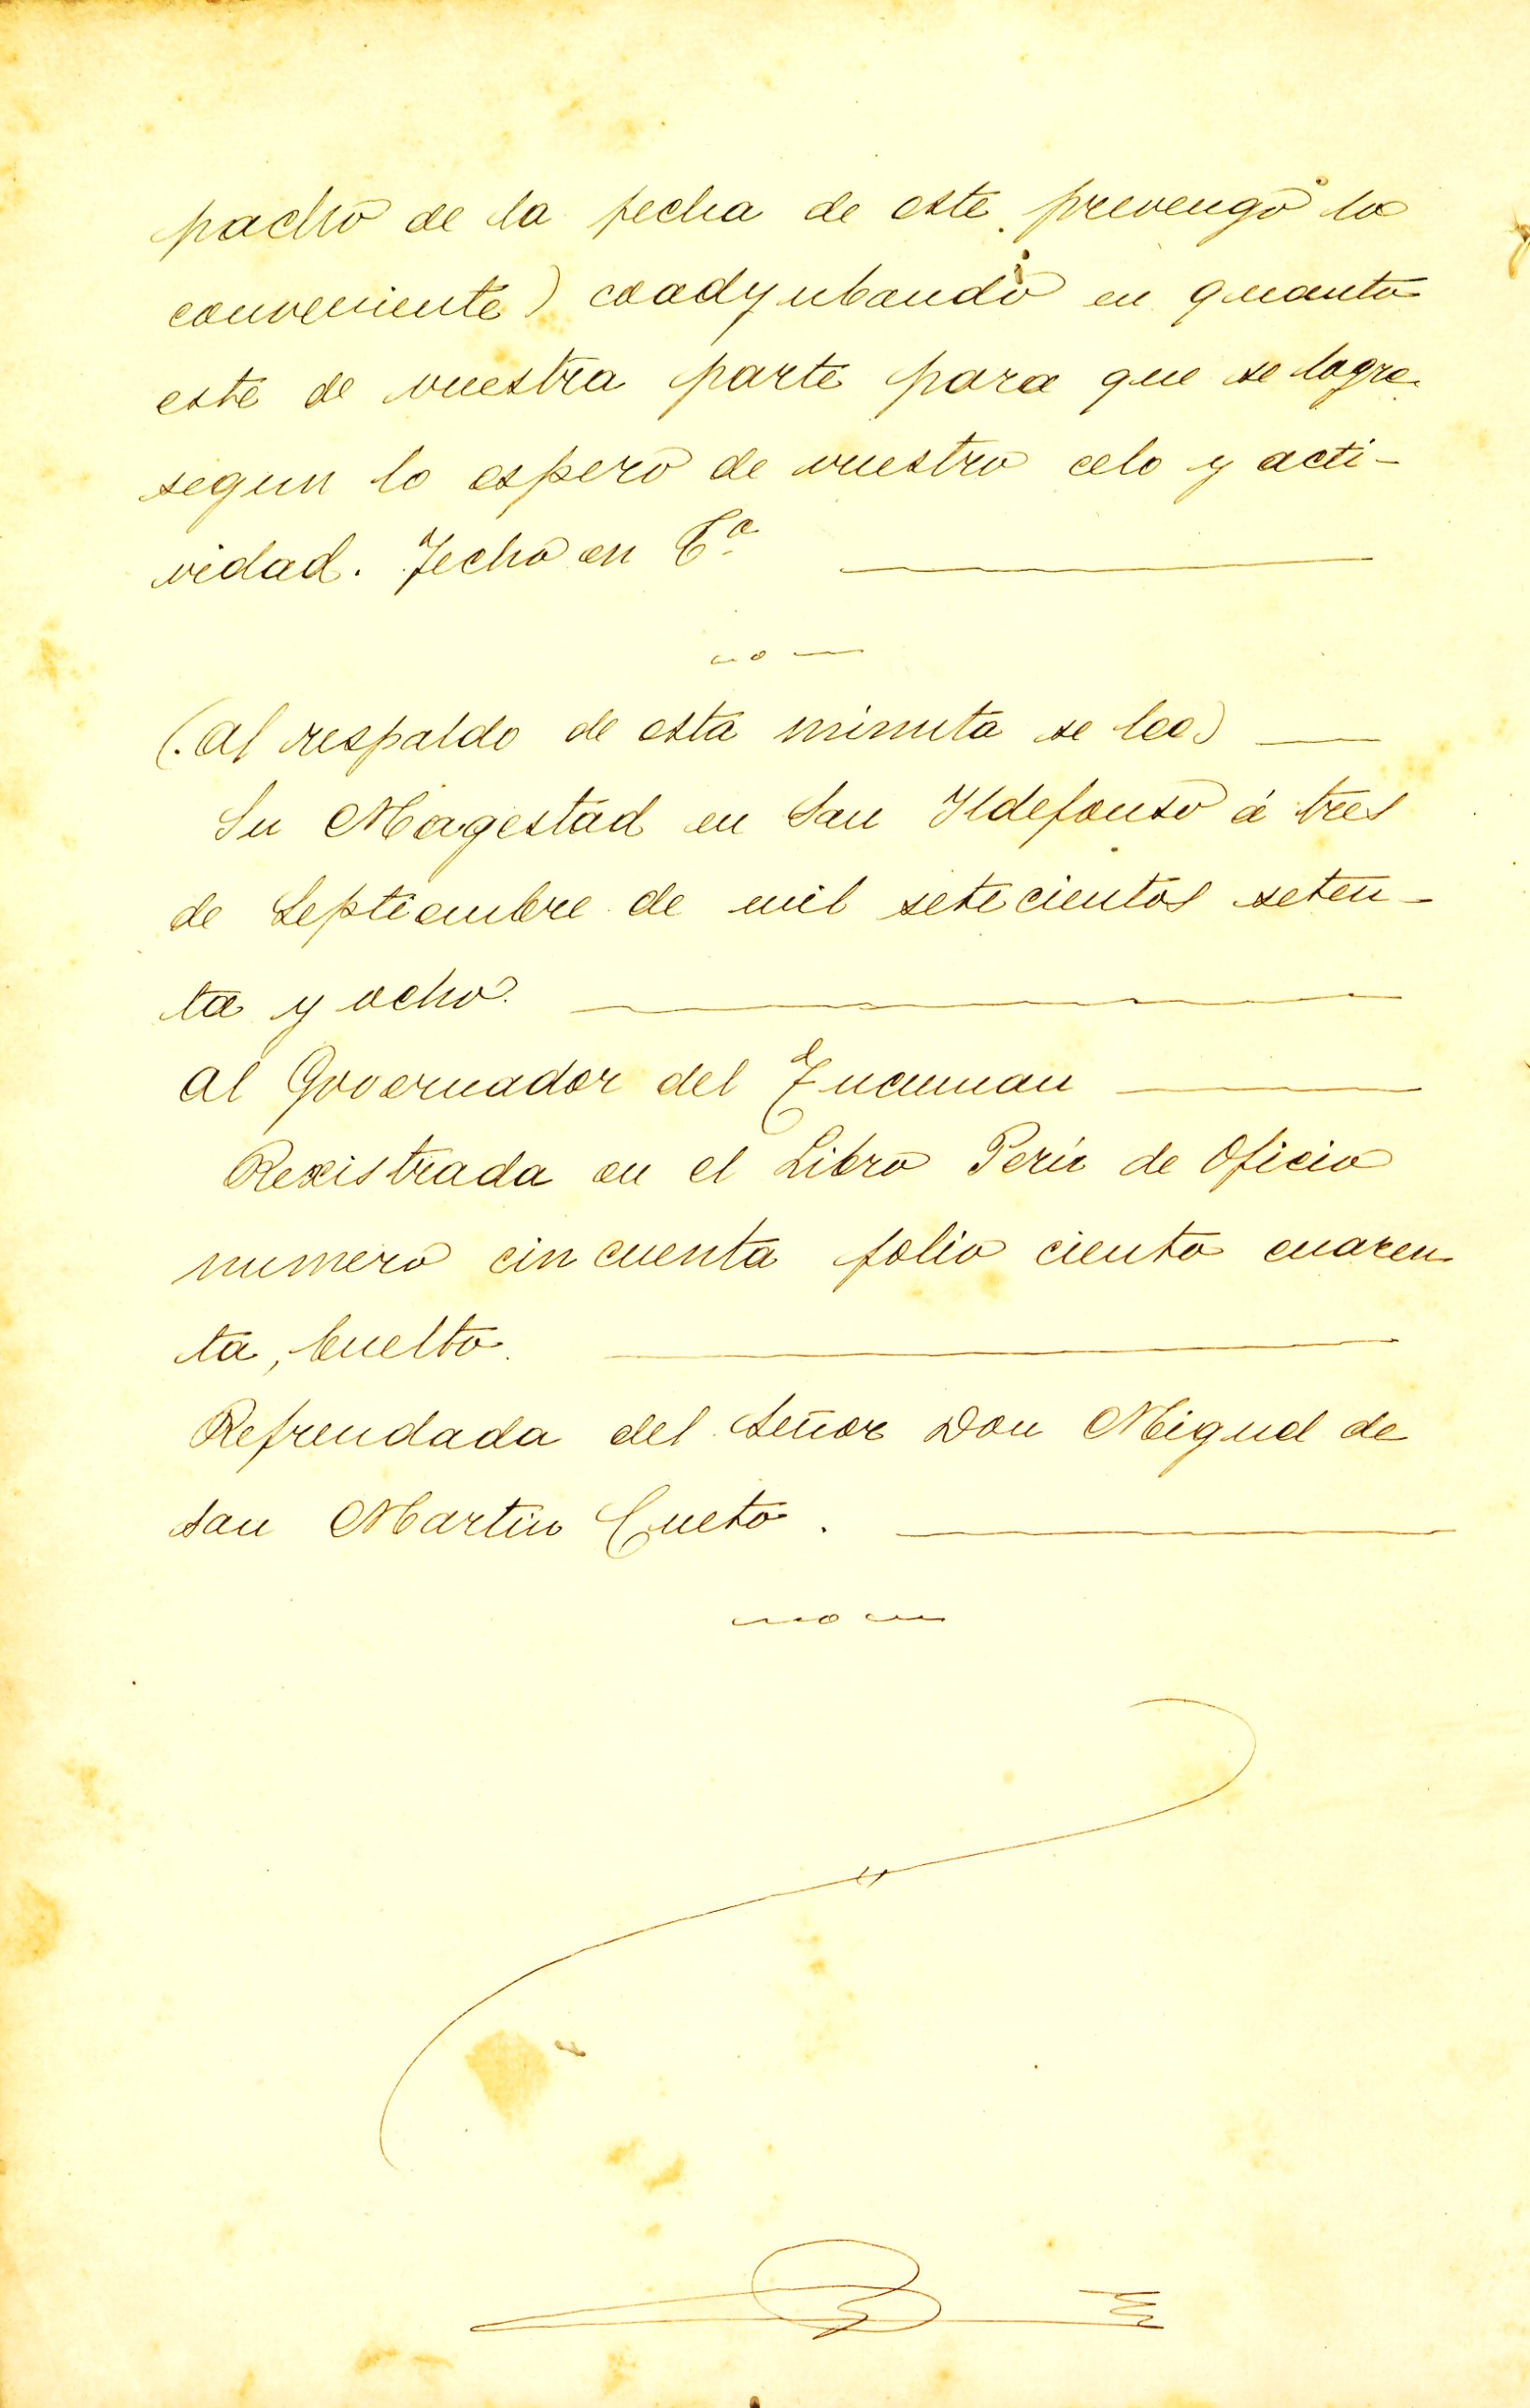 pacho de la fecha de este prevengo lo
conveniente) coadyubando en quanto
este de vuestra parte para que se logre
segun lo espero de vuestro celo y acti-
vidad. Fecho en
(Al respaldo de esta minuta se lee)
Su Magestad en San Ildefonso á tres
de Septiembre de mil setecientos seten-
ta y ocho.
Al Governador del Tucuman
Rexistrada en el Libro Perú de Oficio
numero cincuenta folio ciento cuaren
ta, buelto.
Refrendada del Señor Don Miguel de
San Martin Cueto.